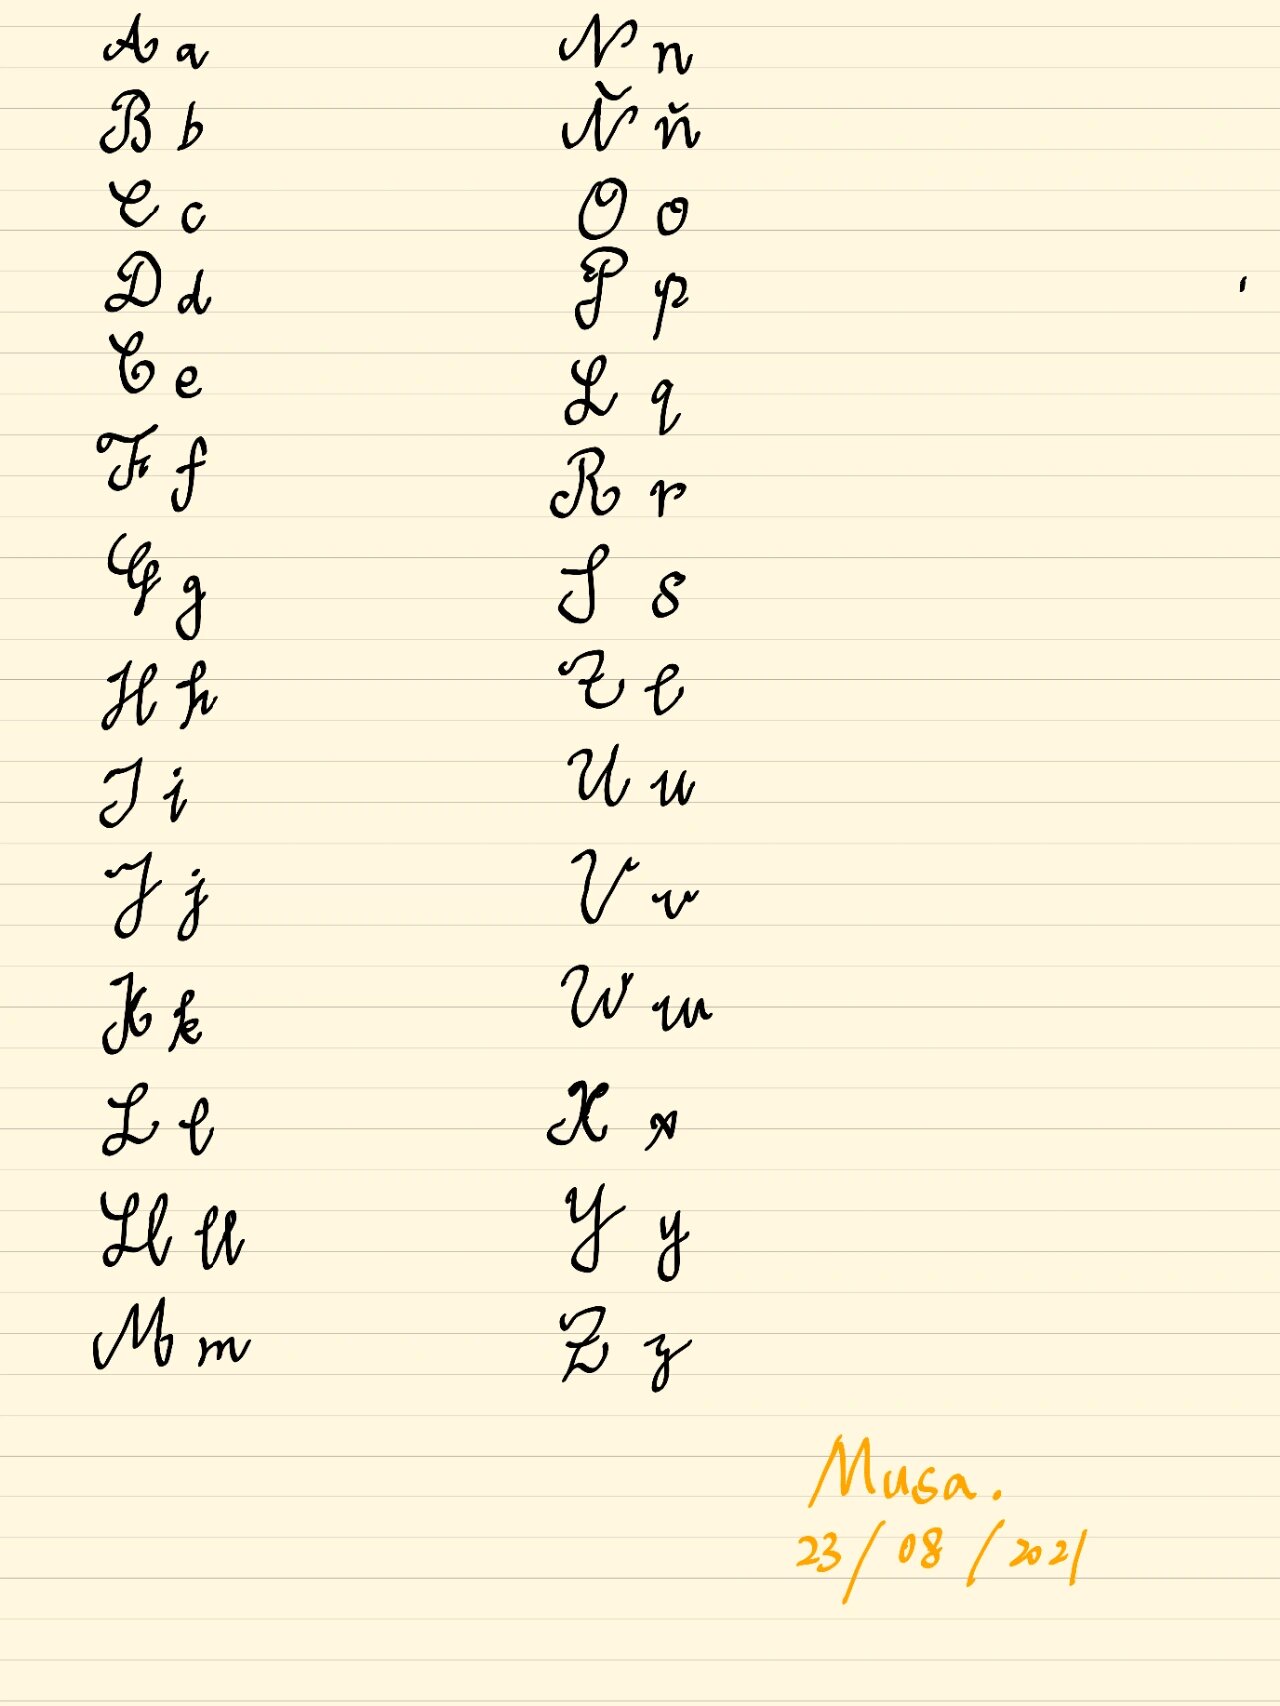 A a
B b
C c
D d
E e
F f
G g
H h
I i
J j
K k
L l
Ll ll
M m
N n
Ñ ñ
O o
P p
Q q
R r
S s
T t
U u
V v
W w
X x
Y y
Z z
Musa.
23/08/2021